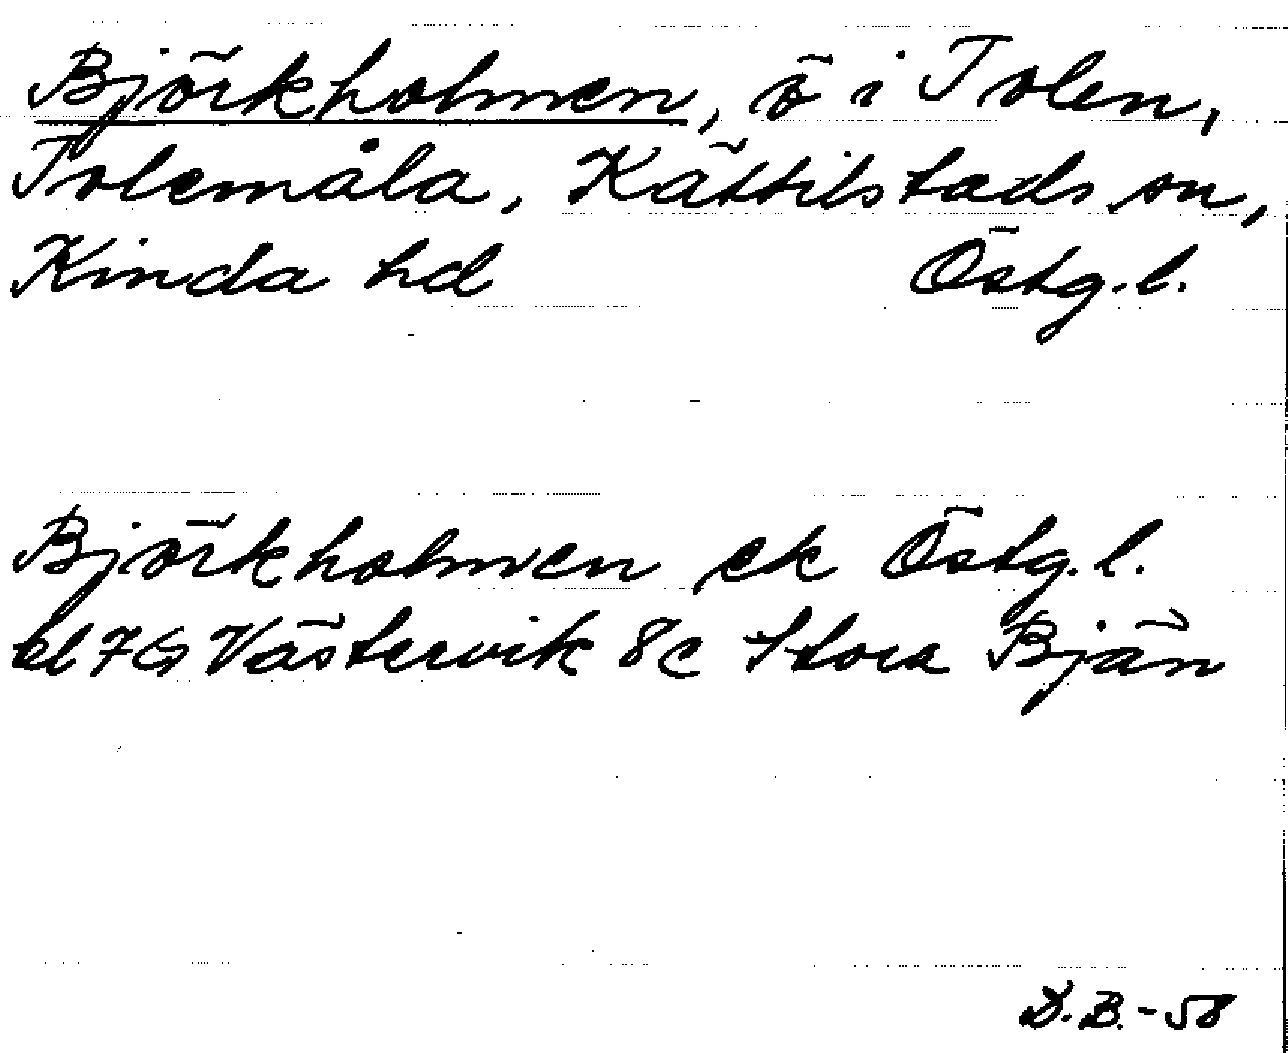 Björkholmen, ö i Tolen,
Tolemåla, Kättilstads sn,
Kinda hd Östg.l.
Björkholmen ek Östg.l.
bl 7G Västervik 8c Stora Bjän
D.B.-58